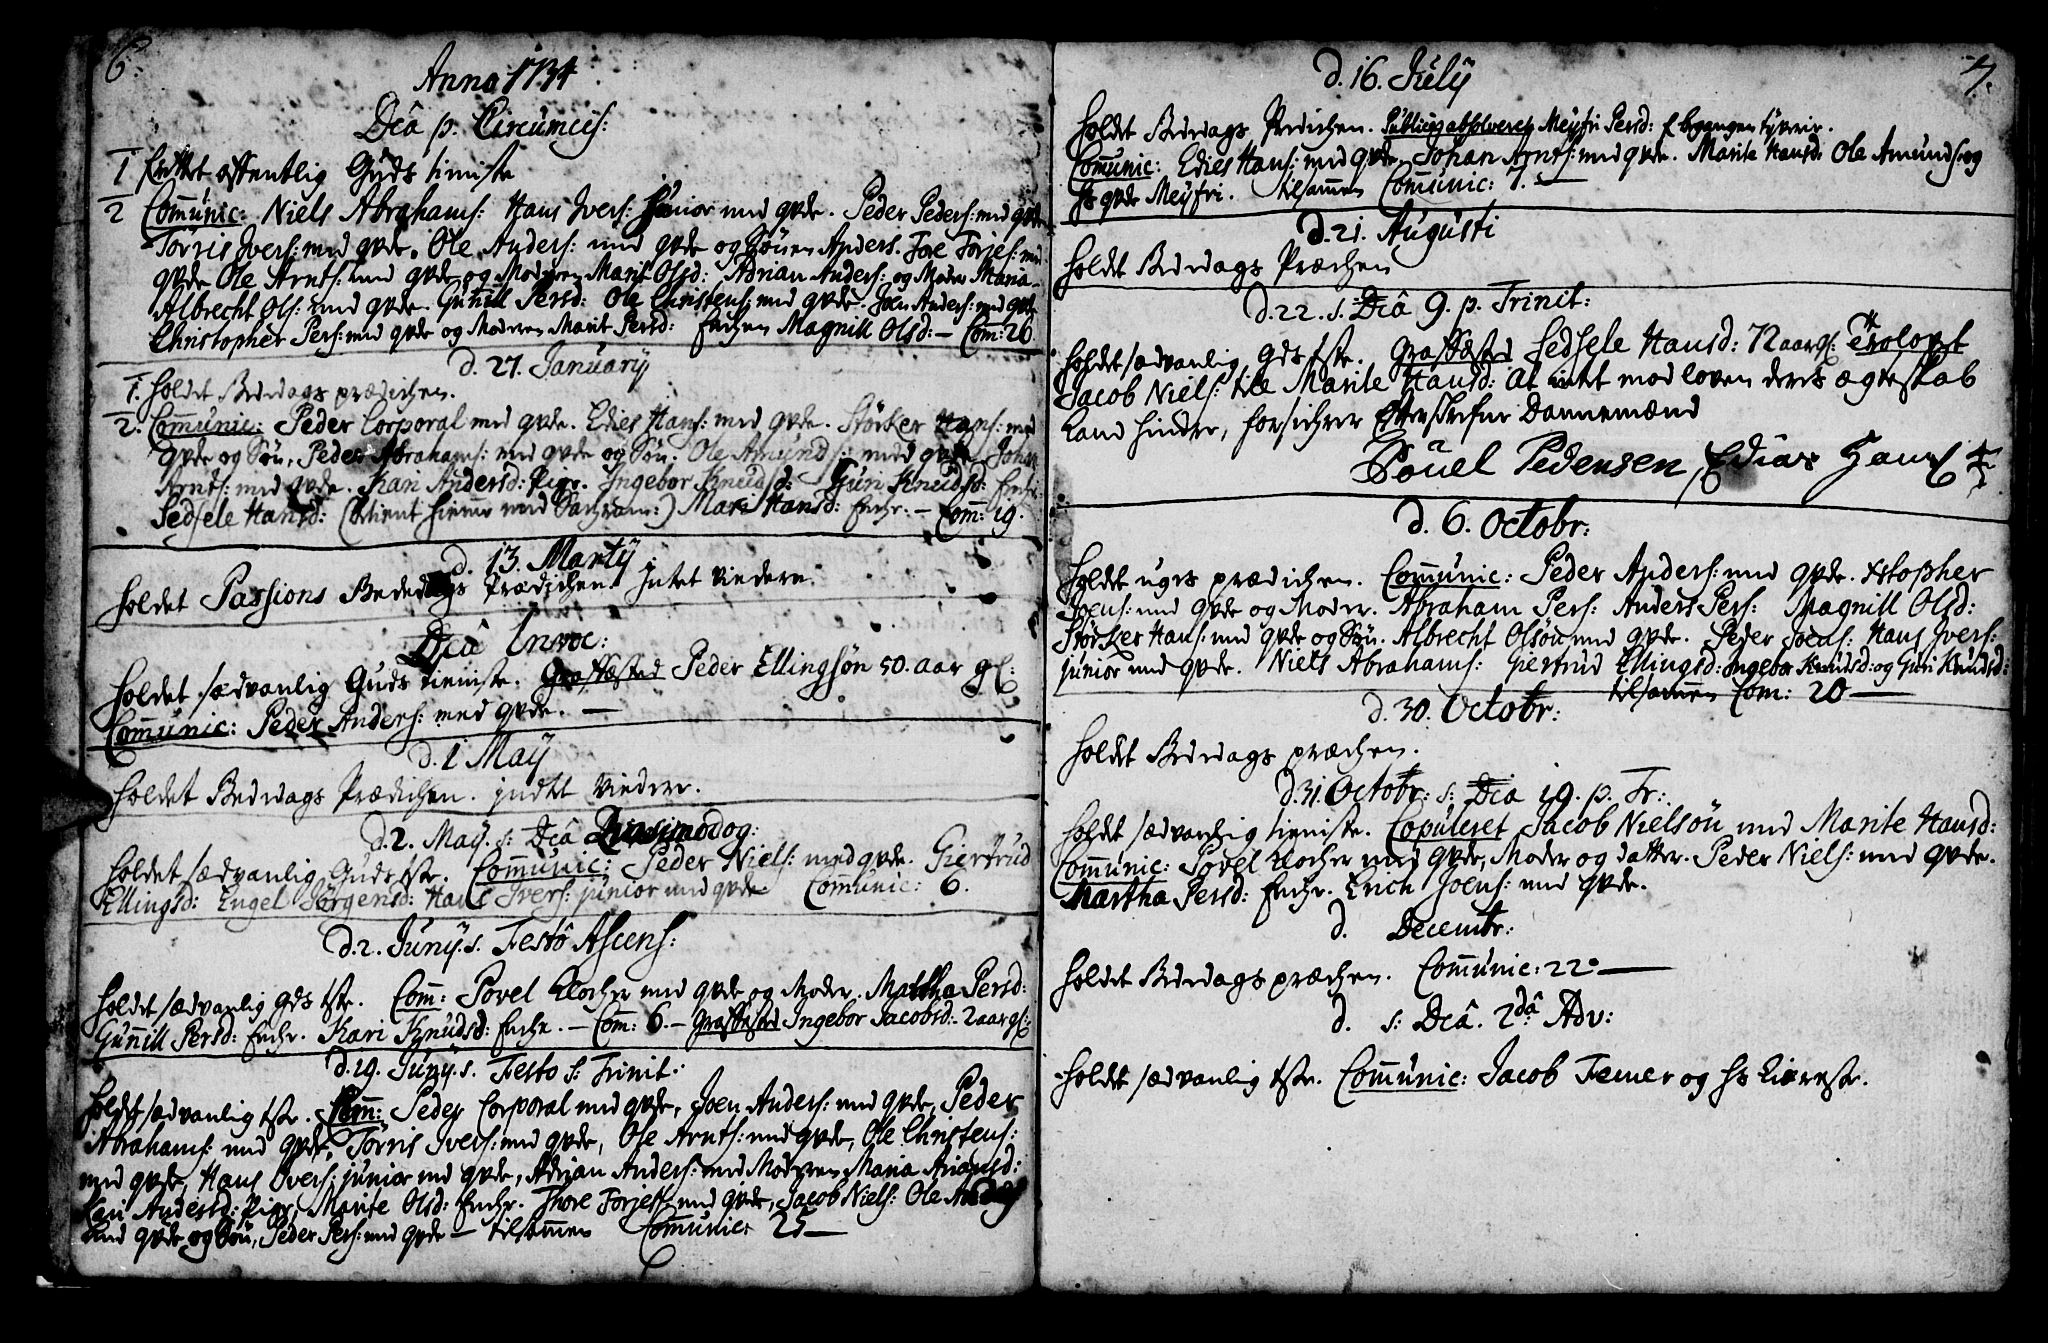 6.
Anno 1734
Dca p. Circumcis:
1 offentlig Guds tieniste
2 Comunic: Niels Abrahams: Hans Ivers: Junior med qvde. Peder Peders: med qvde
Torris Ivers: med qvde. Ole Anders: med qvde og Sönen Anders. Tore Torjes: med
qvde Ole Arnts: med qvde og Moderen Marit Olsd: Adrian Anders: og Moder Maria
Albrecht Ols: med qvde. Gunill Persd: Ole Christens: med qvde. Joen Anders: med qvde
Christopher Pers: med qvde og Moderen Marit Persd: Enchen Magnill Olsd: – Com: 26
d. 27. January
1. Holdet Bededags prædichen.
2. Comunic: Peder Corporal med qvde. Edies Hans: med qvde. Störker Hans: med
qvde og Sön, Peder Abrahams: med qvde og Sön. Ole Amunds: med qvde Johan
Arnts: med qvde. Kari Andersd: Pige. Ingebor Knudsd: Guri Knudsd:
Sedsele Hansd: (betient hiemme med Sacram:) Mari Hansd: Enche. – Com: 19.
d. 13. Marty
Holdet Passions Bededags Prædichen Intet videre.
Dca Invoc:
Holdet sædvanlig Guds tieniste. Grafæsted Peder Ellingsön 50. aar gl:
Comunic: Peder Anders: med qvde. –
d. 1 May
Holdet Bededags Prædichen. indtet videre.
d. 2. May. s: Dca Quasimodog:
Holdet sædvanlig Guds tste. Comunic: Peder Niels: med qvde. Giertrud
Ellingsd: Engel Jörgensd: Hans Ivers: junior med qvde. Comunic: 6.
d. 2. Juny. s. Festo Ascens:
Holdet sædvanlig Gds tste. Com: Povel Klocher med qvde og Moder. Martha Persd:
Gunnill Persd: Enche. Kari Knudsd: Enche. – Com: 6. – Grafæsted Ingebor Jacobsd: 2 aar gl:
d. 19. Juny. s. Festo s: Trinit.
Holdet sædvanlig tste. Com: Peder Corporal med qvde, Joen Anders: med qvde, Peder
Abrahams: med qvde, Torris Ivers: med qvde, Ole Arnts: med qvde, Ole Christens:
med qvde, Hans Ivers: junior med qvde, Adrian Anders: med Moderen Maria Ariansd:
Kari Andersd: Pige, Marite Olsd: Enche. Thore Torjes: med qvde, Jacob Niels: Ole Anders
med qvde og Sön, Peder Pers: med qvde – tilsammen Comunic: 25 –
7.
d. 16. July
Holdet Bededags Prædichen. Publice absolveret Meyfri Persd: f begangen tyverie.
Comunic: Edies Hans: med qvde, Johan Arnts: med qvde. Marite Hansd: Ole Amunds: og
Hs qvde Meyfri. tilsammen Comunic: 7. –
d. 21. Augusti
Holdet Bededags Præchen
d. 22. s. Dca 9. p. Trinit:
Holdet sædvanlig Gds tste. Grafæsted Sedsele Hansd: 72 aar gl: Trolovet
Jacob Niels: til Marite Hansd: At intet mod loven deris ægteskab
kand hindre, forsichrer efterskrefne Dannemænd
Pouel Pedersen, Edias Hans
d. 6. Octobr:
Holdet uges prædichen. Comunic: Peder Anders: med qvde. Xstopher
Joens: med qvde og Moder. Abraham Pers: Anders Pers: Magnill Olsd:
Störker Hans: med qvde og Sön. Albrecht Olsön med qvde. Peder Joens: Hans Ivers:
junior med qvde. Niels Abrahams: Giertrud Ellingsd: Ingebor Knudsd: og Guri Knudsd:
tilsammen Com: 20 –
d. 30. Octobr:
Holdet Bededags præchen.
d. 31. Octobr: s: Dca 19. p. Tr:
Holdet sædvanlig tieniste. Copuleret Jacob Nielsön med Marite Hansd:
Comunic: Povel Klocher med qvde, Moder og datter. Peder Niels: med qvde.
Martha Persd: Enche. Erich Joens: med qvde.
d. Decembr:
Holdet Bededags præchen. Comunic: 22. –
d. s: Dca. 2da Adv:
Holdet sædvanlig tste. Comunic: Jacob Femer og Hs Kiereste.